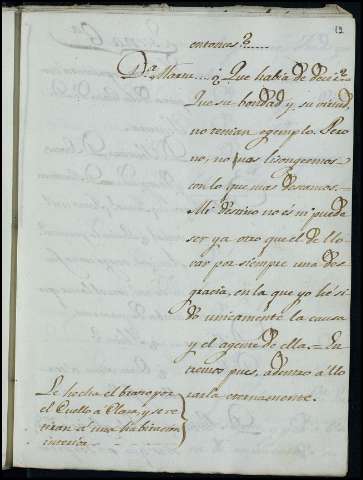 12
entonces?......
D.ª Maria....¿ Que habia de decir?
Que su bondad y su virtud,
no tenian egemplo. Pero
no, no nos lisongeemos
con lo que mas deseamos.=
Mi destino no és ni puede
ser ya otro que el de llo
rar por siempre una des
gracia, en la que yo hé si
do unicamente la causa
y el agente de ella.= En
tremos pues, adentro á llo
rarla eternamente.
Le hecha el brazo por
el Cuello á Clara, y se re
tiran á una habitacion
interior.